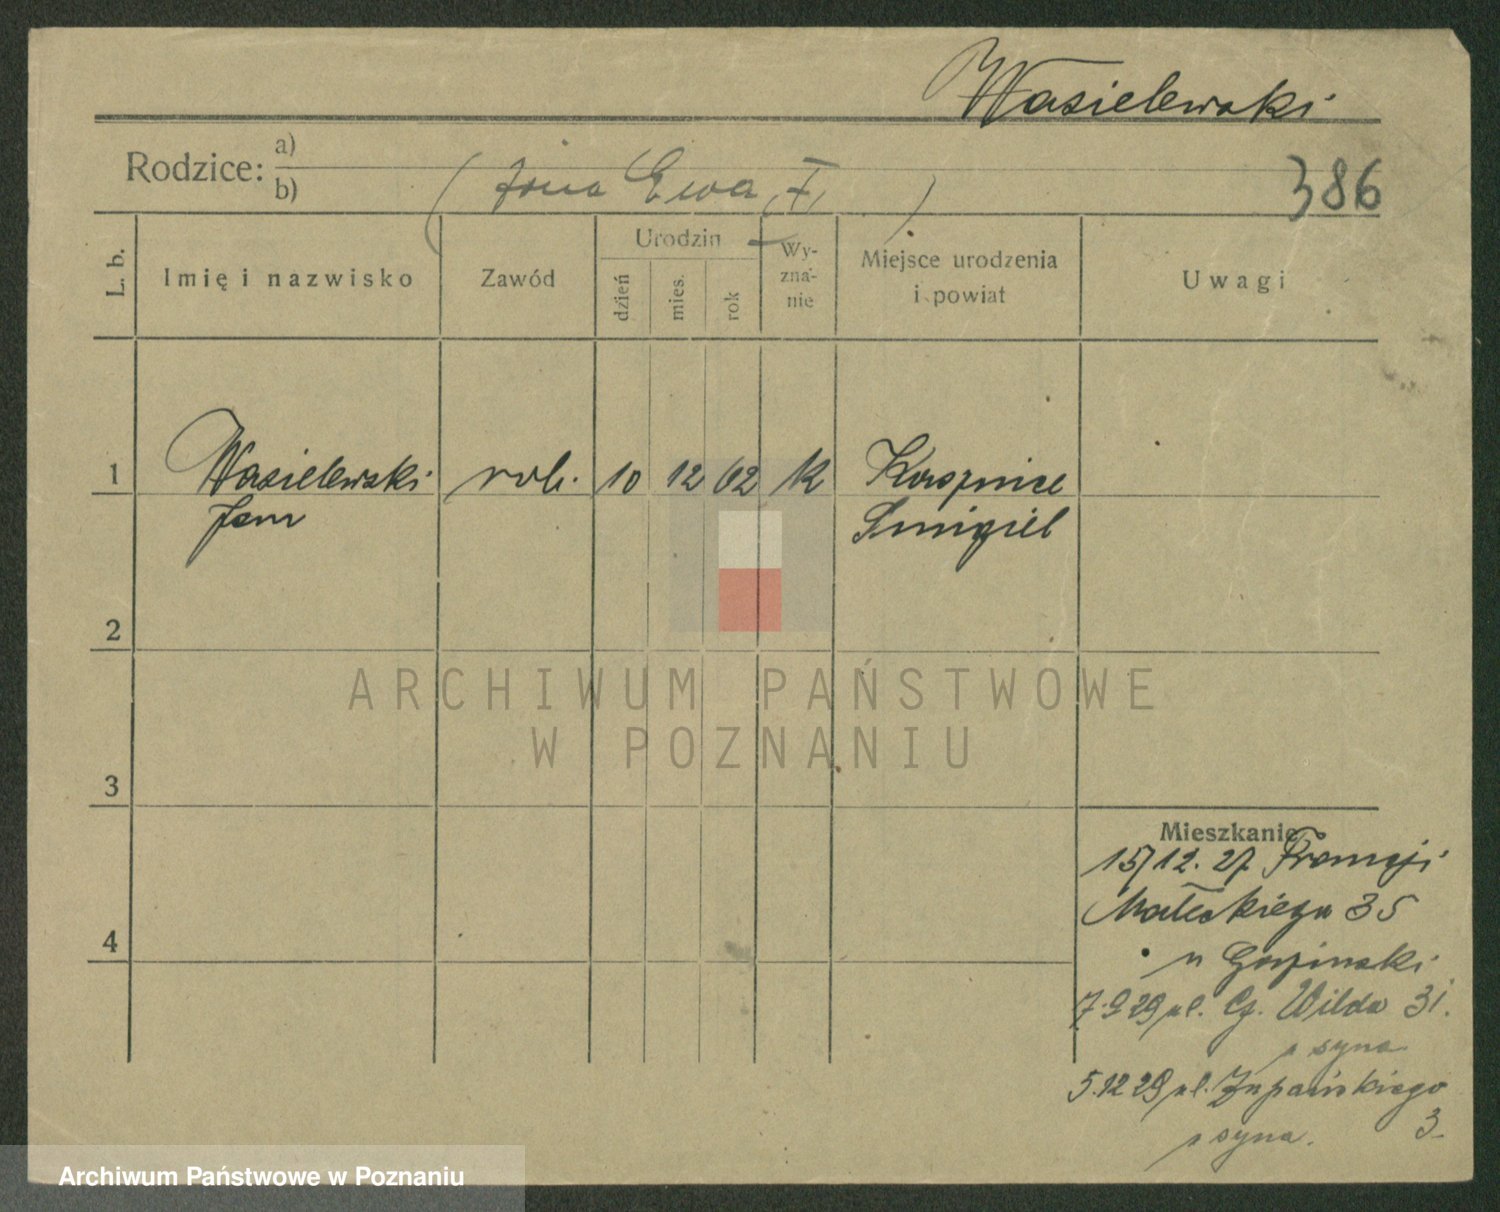 Wasielewski
Rodzice: a)
b) (żona Ewa, F, )
386
L. b.
Imię i nazwisko
Zawód
Urodzin
dzień
mies.
rok
Wy-
zna-
nie
Miejsce urodzenia
i powiat
Uwagi
1 Wasielewski rob. 10 12 02 k
Jan Śmigiel
2
3
4
ARCHIWUM PAŃSTWOWE
W POZNANIU
Mieszkanie
15/12. 27 Francji
Małeckiego 35
u
7.9 29 ul. Wilda 31.
syna
5.12 29 ul. Żupańskiego
3
syna.
Archiwum Państwowe w Poznaniu